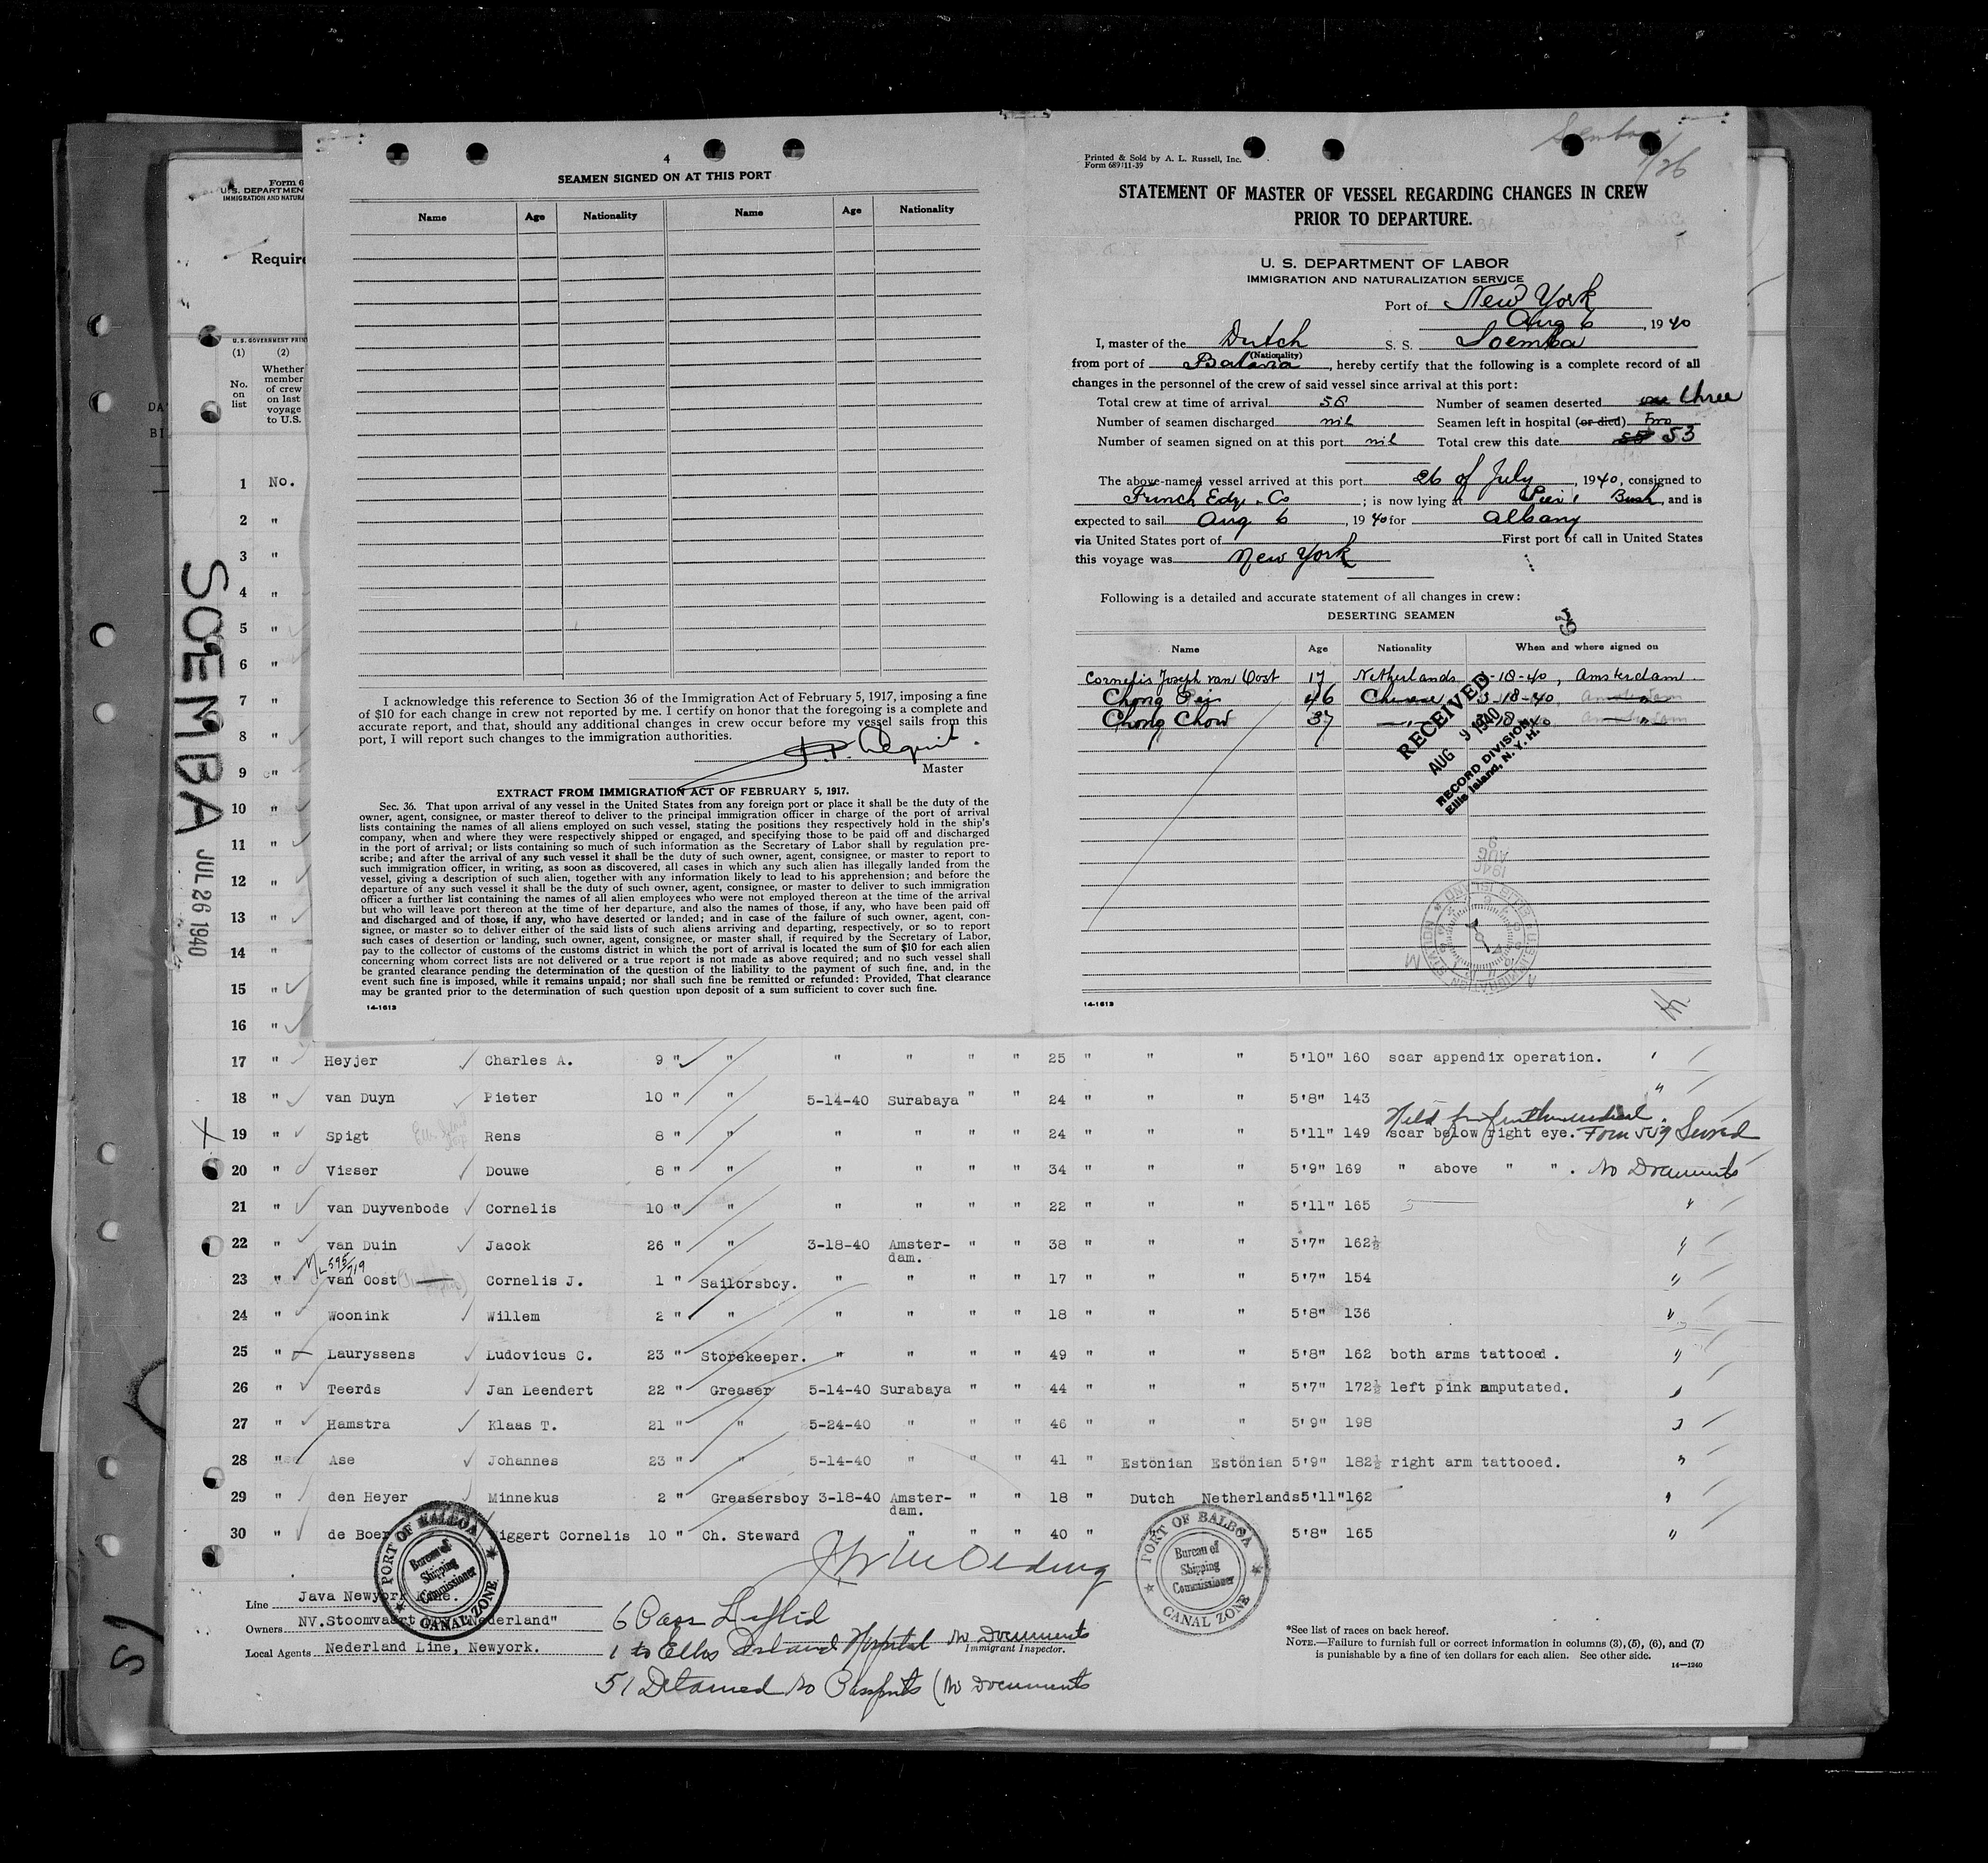 4
SEAMEN SIGNED ON AT THIS PORT
Name Age Nationality Name Age Nationality
I acknowledge this reference to Section 36 of the Immigration Act of February 5, 1917, imposing a fine
of $10 for each change in crew not reported by me. I certify on honor that the foregoing is a complete and
accurate report, and that, should any additional changes in crew occur before my vessel sails from this
port, I will report such changes to the immigration authorities.
Master
EXTRACT FROM IMMIGRATION ACT OF FEBRUARY 5, 1917.
Sec. 36. That upon arrival of any vessel in the United States from any foreign port or place it shall be the duty of the
owner, agent, consignee, or master thereof to deliver to the principal immigration officer in charge of the port of arrival
lists containing the names of all aliens employed on such vessel, stating the positions they respectively hold in the ship's
company, when and where they were respectively shipped or engaged, and specifying those to be paid off and discharged
in the port of arrival; or lists containing so much of such information as the Secretary of Labor shall by regulation pre-
scribe; and after the arrival of any such vessel it shall be the duty of such owner, agent, consignee, or master to report to
such immigration officer, in writing, as soon as discovered, all cases in which any such alien has illegally landed from the
vessel, giving a description of such alien, together with any information likely to lead to his apprehension; and before the
departure of any such vessel it shall be the duty of such owner, agent, consignee, or master to deliver to such immigration
officer a further list containing the names of all alien employees who were not employed thereon at the time of the arrival
but who will leave port thereon at the time of her departure, and also the names of those, if any, who have been paid off
and discharged and of those, if any, who have deserted or landed; and in case of the failure of such owner, agent, con-
signee, or master so to deliver either of the said lists of such aliens arriving and departing, respectively, or so to report
such cases of desertion or landing, such owner, agent, consignee, or master shall, if required by the Secretary of Labor,
pay to the collector of customs of the customs district in which the port of arrival is located the sum of $10 for each alien
concerning whom correct lists are not delivered or a true report is not made as above required; and no such vessel shall
be granted clearance pending the determination of the question of the liability to the payment of such fine, and, in the
event such fine is imposed, while it remains unpaid; nor shall such fine be remitted or refunded: Provided, That clearance
may be granted prior to the determination of such question upon deposit of a sum sufficient to cover such fine.
14-1613
Printed & Sold by A. L. Russell, Inc.
Form 689 11-39
Soemba
7/26
STATEMENT OF MASTER OF VESSEL REGARDING CHANGES IN CREW
PRIOR TO DEPARTURE.
U. S. DEPARTMENT OF LABOR
IMMIGRATION AND NATURALIZATION SERVICE
Port of New York
Aug 6, 1940
I, master of the Dutch S. S. Soemba
(Nationality)
from port of Batavia, hereby certify that the following is a complete record of all
changes in the personnel of the crew of said vessel since arrival at this port:
Total crew at time of arrival 58 Number of seamen deserted one three
Number of seamen discharged nil Seamen left in hospital (or died) Two
Number of seamen signed on at this port nil Total crew this date 55 53
The above-named vessel arrived at this port 26 of July, 1940, consigned to
Funch Edye Co; is now lying at Pier 1 Bush, and is
expected to sail Aug 6, 1940 for Albany
via United States port of First port of call in United States
this voyage was New York
Following is a detailed and accurate statement of all changes in crew:
DESERTING SEAMEN
Name Age Nationality When and where signed on
Cornelis Joseph van Oost 17 Netherlands 3-18-40, Amsterdam.
Chong Pei 46 Chinese 3-18-40, "
Chong Chow 37 " 3-18-40 "
RECEIVED
AUG 9 1940
RECORD DIVISION,
Ellis Island, N. Y. H.
14-1613
Form 6
U. S. DEPARTMEN
IMMIGRATION AND NATURA
Require
U. S. GOVERNMENT PRIN
(1) (2)
No. on list
Whether member of crew on last voyage to U.S.
SOEMBA JUL 26 1940
1 No.
2 "
3 "
4 "
5 "
6 "
7 "
8 "
9 "
10 "
11 "
12 "
13 "
14 "
15 "
16 "
17 " Heyjer Charles A. 9 " " " " " " 25 " " " 5'10" 160 scar appendix operation. "
18 " van Duyn Pieter 10 " " 5-14-40 Surabaya " " 24 " " " 5'8" 143 "
Held for further medical.
19 " Spigt Rens 8 " " " " " " 24 " " " 5'11" 149 scar below right eye. Form 559 Served
20 " Visser Douwe 8 " " " " " " 34 " " " 5'9" 169 " above " ". No Documents
21 " van Duyvenbode Cornelis 10 " " " " " " 22 " " " 5'11" 165 "
22 " van Duin Jacok 26 " " 3-18-40 Amster-dam. " " 38 " " " 5'7" 162½ "
23 " van Oost Cornelis J. 1 " Sailorsboy. " " " " 17 " " " 5'7" 154 "
24 " Woonink Willem 2 " " " " " " 18 " " " 5'8" 136 "
25 " Lauryssens Ludovicus C. 23 " Storekeeper. " " " " 49 " " " 5'8" 162 both arms tattooed. "
26 " Teerds Jan Leendert 22 " Greaser 5-14-40 Surabaya " " 44 " " " 5'7" 172½ left pink amputated. "
27 " Hamstra Klaas T. 21 " " 5-24-40 " " " 46 " " " 5'9" 198 "
28 " Ase Johannes 23 " " 5-14-40 " " " 41 " Estonian Estonian 5'9" 182½ right arm tattooed. "
29 " den Heyer Minnekus 2 " Greasersboy 3-18-40 Amster-dam. " " 18 " Dutch Netherlands 5'11" 162 "
30 " de Boer iggert Cornelis 10 " Ch. Steward " " " " 40 " " " 5'8" 165 "
PORT OF BALBOA
Bureau of
Shipping
Commissioner
CANAL ZONE
PORT OF BALBOA
Bureau of
Shipping
Commissioner
CANAL ZONE
Line Java Newyork Line.
Owners NV.Stoomvaart "Nederland"
Local Agents Nederland Line, Newyork.
Immigrant Inspector.
1 to Ellis Island Hospital no Documents
51 Detained no Passports (no Documents
*See list of races on back hereof.
NOTE.—Failure to furnish full or correct information in columns (3), (5), (6), and (7)
is punishable by a fine of ten dollars for each alien. See other side.
14-1240
51